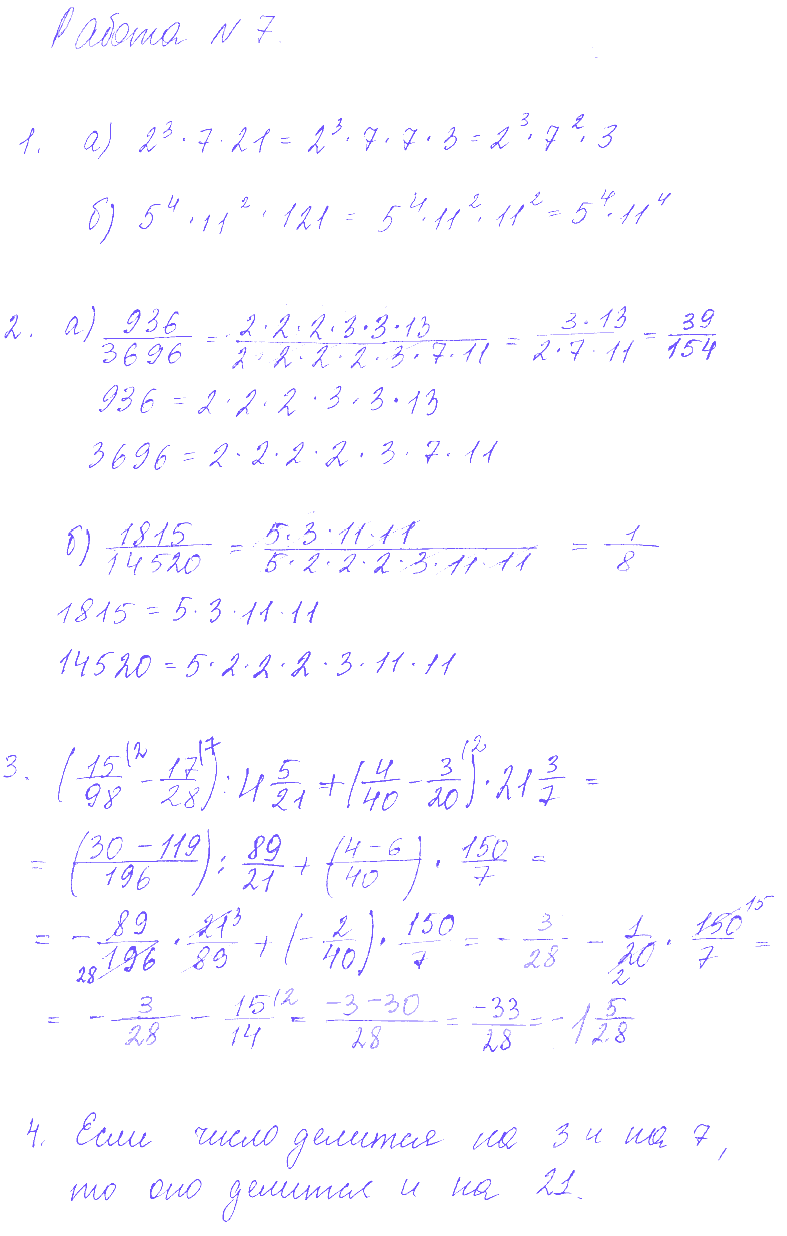 Работа N 7.
1. а) 2³ · 7 · 21 = 2³ · 7 · 7 · 3 = 2³ · 7² · 3
б) 5⁴ · 11² · 121 = 5⁴ · 11² · 11² = 5⁴ · 11⁴
2. а) 936/3696 = (2 · 2 · 2 · 3 · 3 · 13)/(2 · 2 · 2 · 2 · 3 · 7 · 11) = (3 · 13)/(2 · 7 · 11) = 39/154
936 = 2 · 2 · 2 · 3 · 3 · 13
3696 = 2 · 2 · 2 · 2 · 3 · 7 · 11
б) 1815/14520 = (5 · 3 · 11 · 11)/(5 · 2 · 2 · 2 · 3 · 11 · 11) = 1/8
1815 = 5 · 3 · 11 · 11
14520 = 5 · 2 · 2 · 2 · 3 · 11 · 11
3. (15/98 ⁽² - 17/28 ⁽⁷) : 4 5/21 + (4/40 - 3/20 ⁽²) · 21 3/7 =
= ((30 - 119)/196) : 89/21 + ((4 - 6)/40) · 150/7 =
= - 89/196 28 · 21 3/89 + (- 2/40) · 150/7 = - 3/28 - 1/20 2 · 150 15/7 =
= - 3/28 - 15/14 ⁽² = (-3 - 30)/28 = -33/28 = -1 5/28
4. Если число делится на 3 и на 7,
то оно делится и на 21.